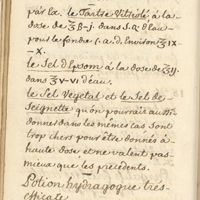 par la. le Tartre Vitriolé à la
dose de ʒß–j. dans S.Q. d'eau
pour le fondre (.a.d. Environ ʒIX
–X.
le Sel d'Epsom à la dose de ʒIJ.
dans ʒV–VI d'eau.
le Sel Vegetal et le Sel de
Seignette qu'on pourrait aussi
donner dans les mêmes cas sont
trop chers pour être donnés à
haute dose et ne valent pas
mieux que les précédents.
Potion hydragogue très
efficace